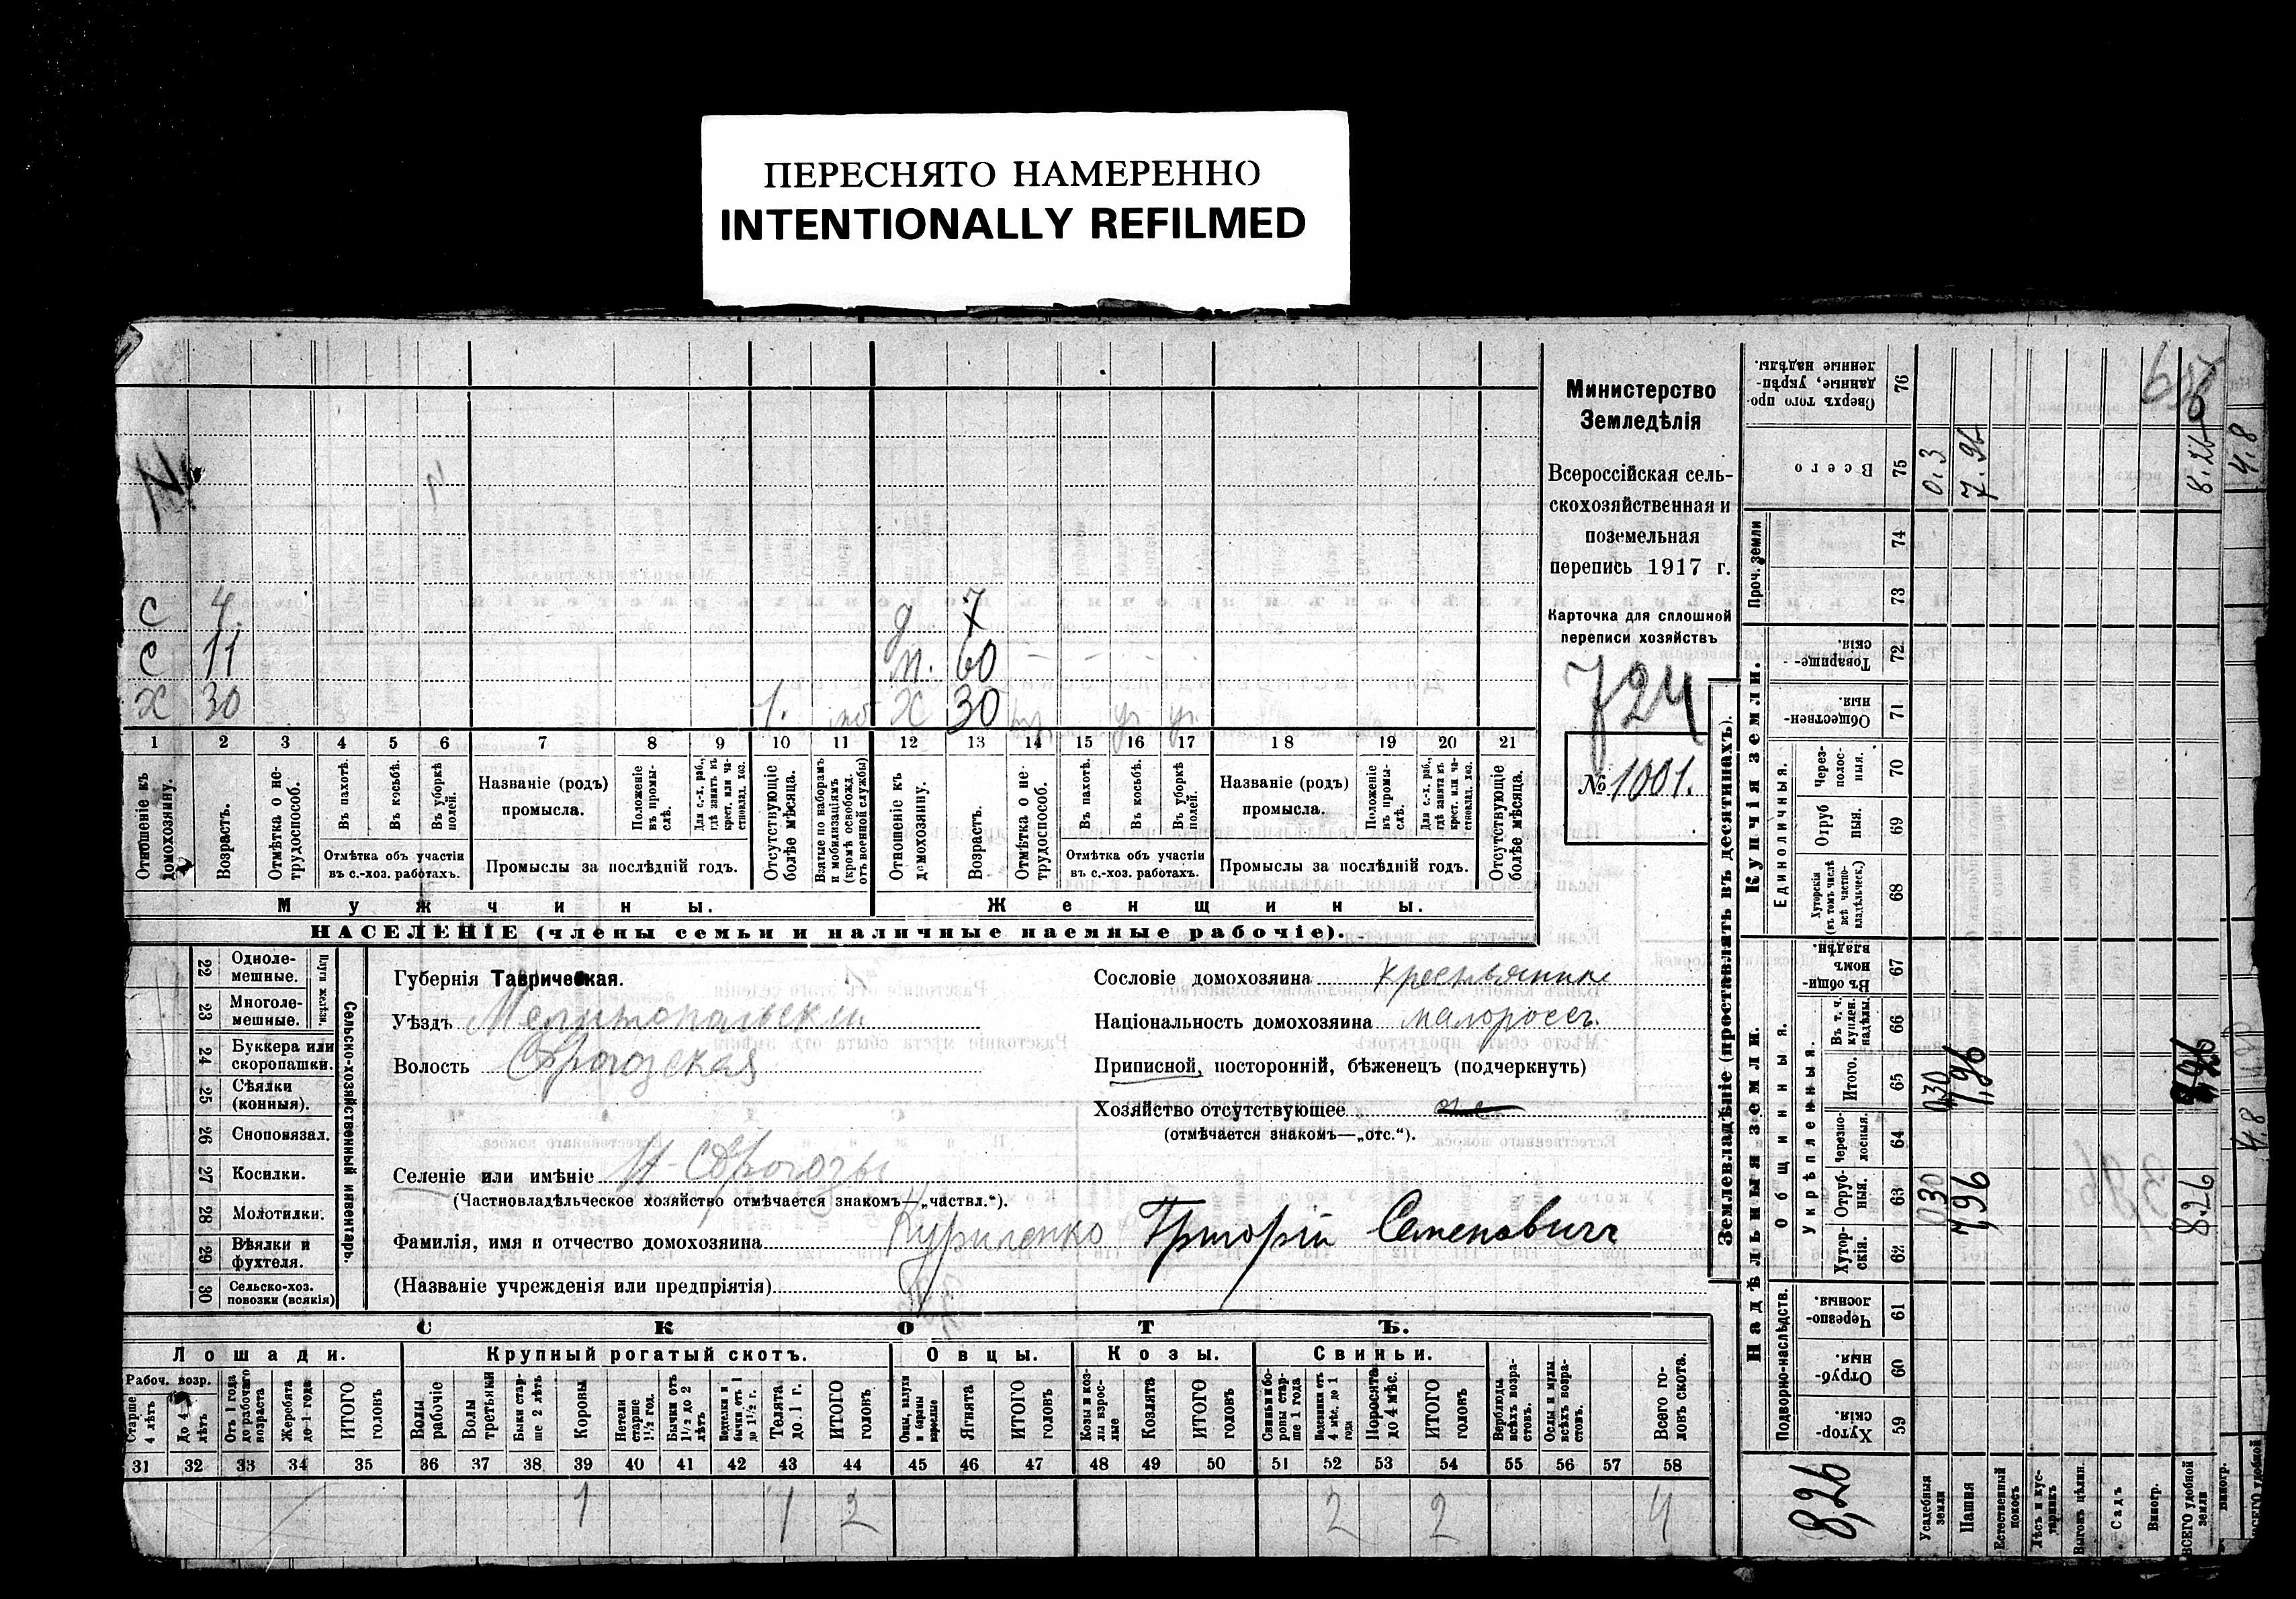 ПЕРЕСНЯТО НАМЕРЕННО
INTENTIONALLY REFILMED
С 4 д 7
С 11 м. 60
Х 30 1. Х 30
1 2 3 4 5 6 7 8 9 10 11 12 13 14 15 16 17 18 19 20 21
Отношеніе къ домохозяину.
Возрастъ.
Отмѣтка о нетрудоспособ.
Въ пахотѣ.
Въ косьбѣ.
Въ уборкѣ полей.
Отмѣтка объ участіи въ с.-хоз. работахъ.
Названіе (родъ) промысла.
Положеніе въ промыслѣ.
Для с.-х. раб., гдѣ занятъ въ крест. или частновлад. хоз.
Промыслы за послѣдній годъ.
Отсутствующіе болѣе мѣсяца.
Взятые по наборамъ и мобилизаціямъ (кромѣ освобожд. отъ военной службы)
Отношеніе къ домохозяину.
Возрастъ.
Отмѣтка о нетрудоспособ.
Въ пахотѣ.
Въ косьбѣ.
Въ уборкѣ полей.
Отмѣтка объ участіи въ с.-хоз. работахъ.
Названіе (родъ) промысла.
Положеніе въ промыслѣ.
Для с.-х. раб., гдѣ занятъ въ крест. или частновлад. хоз.
Промыслы за послѣдній годъ.
Отсутствующіе болѣе мѣсяца.
Мужчины. Женщины.
НАСЕЛЕНІЕ (члены семьи и наличные наемные рабочіе).
Министерство
Земледѣлія
Всероссійская сель-
скохозяйственная и
поземельная
перепись 1917 г.
Карточка для сплошной
переписи хозяйствъ
724
№ 1001.
22 Одноле-мешные.
23 Многоле-мешные.
Плуги желѣзн.
24 Буккера или скоропашки.
25 Сѣялки (конныя).
26 Сноповязал.
27 Косилки.
28 Молотилки.
29 Вѣялки и фухтеля.
30 Сельско-хоз. повозки (всякія)
Сельско-хозяйственный инвентарь.
Губернія Таврическая.
Уѣздъ Мелитопольскій
Волость
Селеніе или имѣніе
(Частновладѣльческое хозяйство отмѣчается знакомъ—„частвл.“).
Фамилія, имя и отчество домохозяина Куриленко Григорій Семеновичъ
(Названіе учрежденія или предпріятія)
Сословіе домохозяина крестьянинъ
Національность домохозяина малороссъ.
Приписной, посторонній, бѣженецъ (подчеркнуть)
Хозяйство отсутствующее
(отмѣчается знакомъ—„отс.“).
СКОТЪ.
Лошади. Крупный рогатый скотъ. Овцы. Козы. Свиньи.
Рабоч. возр.
Старше 4 лѣтъ
До 4 лѣтъ
Отъ 1 года до рабочаго возраста
Жеребята до 1 года
ИТОГО головъ
Волы рабочіе
Волы третьяки
Быки старше 2 лѣтъ
Коровы
Нетели старше 1½ год.
Бычки отъ 1½ до 2 лѣтъ
Подтелки и бычки отъ 1 до 1½ г.
Телята до 1 г.
ИТОГО головъ
Овцы, валухи и бараны взрослые
Ягнята
ИТОГО головъ
Козы и козлы взрослые
Козлята
ИТОГО головъ
Свиньи и боровы старше 1 года
Подсвинки отъ 4 мѣс. до 1 года
Поросята до 4 мѣс.
ИТОГО головъ
Верблюды всѣхъ возрастовъ.
Ослы и мулы всѣхъ возрастовъ.
Всего головъ скота.
31 32 33 34 35 36 37 38 39 40 41 42 43 44 45 46 47 48 49 50 51 52 53 54 55 56 57 58
1 1 2 2 2 4
Землевладѣніе (проставлять въ десятинахъ).
Надѣльныя земли. Купчія земли. Проч. земли
Подворно-наслѣдств. Общинныя. Единоличныя.
Укрѣпленныя.
Хуторскія 59
Отрубныя. 60
Черезполосныя 61
Хуторскія. 62
Отрубныя. 63
Черезполосныя. 64
Итого. 65
Въ т. ч. куплен. надѣлы. 66
Въ общинномъ владѣн. 67
Хуторскія (въ томъ числѣ всѣ частновладѣльческ.) 68
Отрубныя. 69
Черезполосныя. 70
Общественныя. 71
Товарищескія. 72
73
74
Всего 75
Сверхъ того проданные, укрѣпленные надѣлы. 76
8,26
Усадебныя земли 030 0,30 0.3
Пашня 7,96 7,96 7.96
Естественный покосъ
Лѣсъ и кустарникъ
Выгонъ цѣлин.
Садъ
Виногр.
ВСЕГО удобной земли 8.26 8.26
4.8 4.8